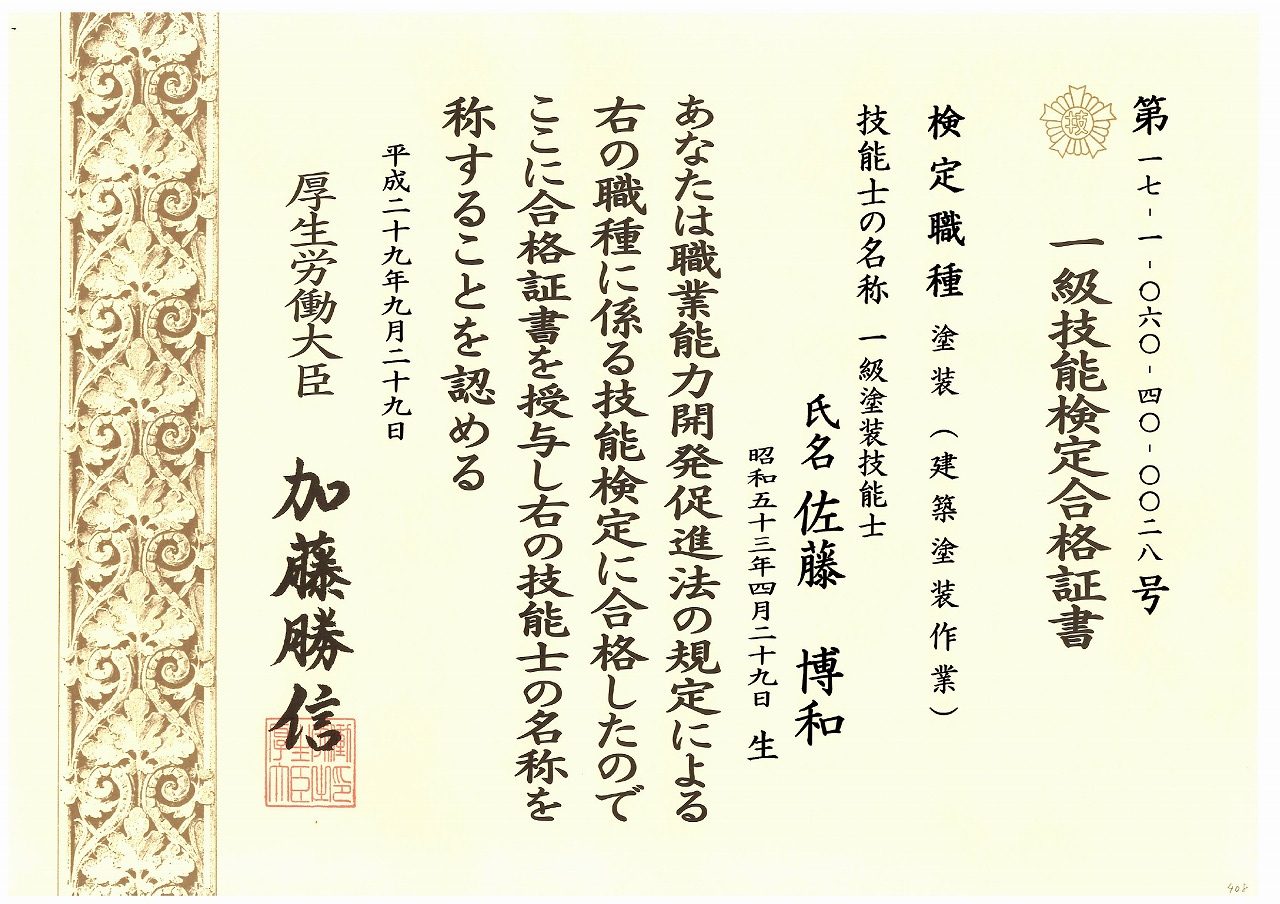 第一七-一-〇六〇-四〇-〇〇二八号
技
一級技能検定合格証書
検定職種 塗装(建築塗装作業)
技能士の名称 一級塗装技能士
氏名 佐藤 博和
昭和五十三年四月二十九日 生
あなたは職業能力開発促進法の規定による
右の職種に係る技能検定に合格したので
ここに合格証書を授与し右の技能士の名称を
称することを認める
平成二十九年九月二十九日
厚生労働大臣 加藤勝信
408